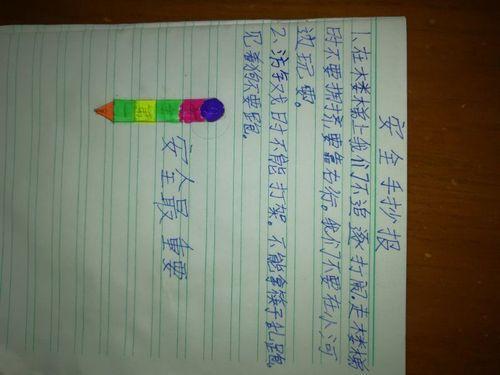 安全手抄报
1、在楼梯上我们不追逐打闹.走楼梯
时不要拥挤要靠右行。我们不要在小河
边玩耍。
2、游戏时不能打架。不能拿筷子乱跑。
不要跑。
安全最重要